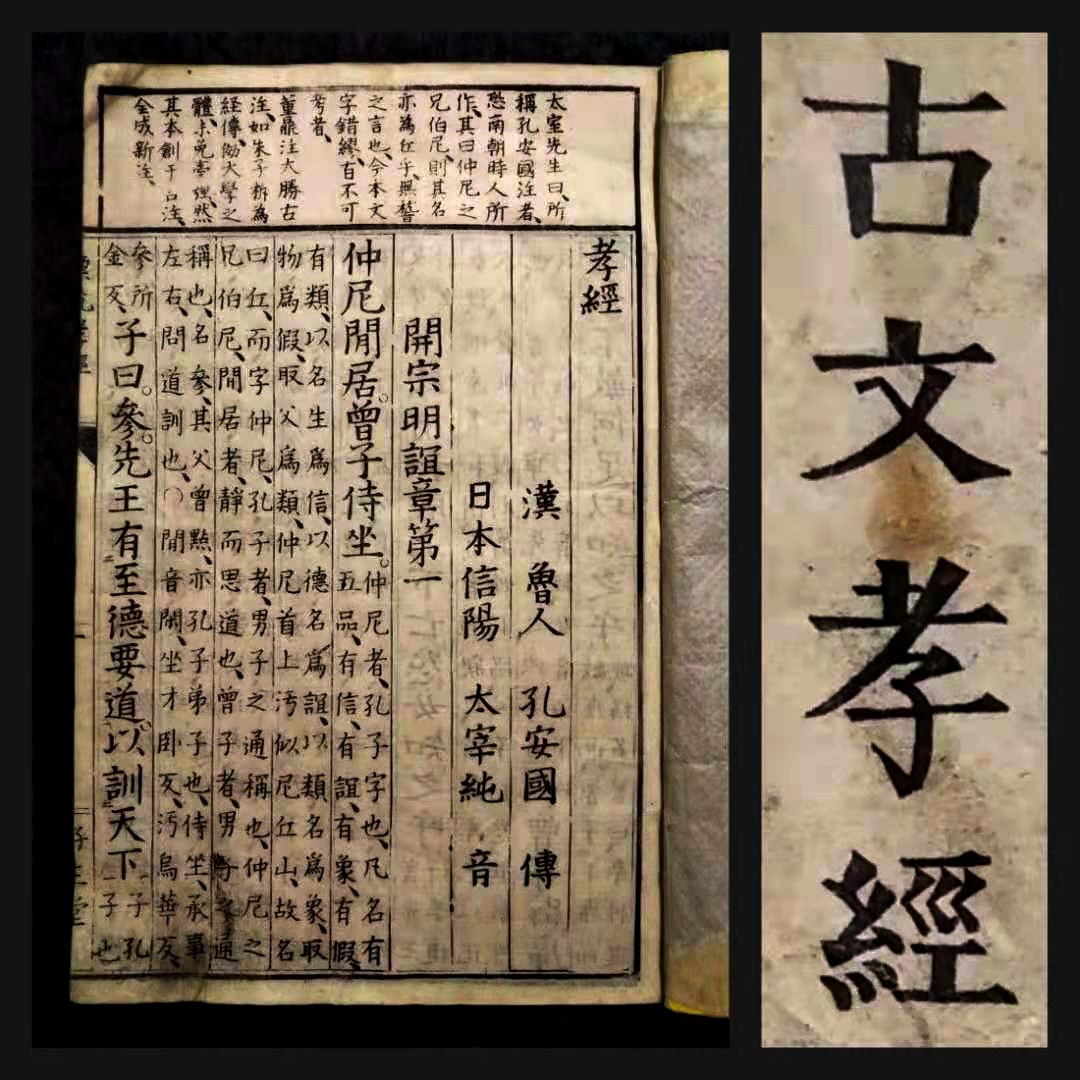 古文孝經
太室先生曰、所
稱孔安國注者、
恐南朝時人所
作、其曰仲尼之
兄伯尼、則其名
亦為丘乎、無誓
之言也、今本文
字錯繆、有不可
考者、
董鼎注大勝古
注、如朱子析為
經傳、倣大學之
體、未免壺然
其本創于古注、
全成新注、
孝經
漢 魯人 孔安國 傳
日本信陽 太宰純 音
開宗明誼章第一
仲尼閒居。曾子侍坐。仲尼者、孔子字也、凡名有
五品、有信、有誼、有象、有假、
有類、以名生爲信、以德名爲誼、以類名爲象、取
物爲假、取父爲類、仲尼首上汚似尼丘山、故名
曰丘、而字仲尼、孔子者、男子之通稱也、仲尼之
兄伯尼、閒居者、靜而思道也、曾子者、男子之通
稱也、名參、其父曾點、亦孔子弟子也、侍坐、承事
左右、問道訓也、○閒音閑、坐才卧反、汚烏華反、
參所
金反、子曰。參。先王有至德要道。以訓天下 子孔
子也